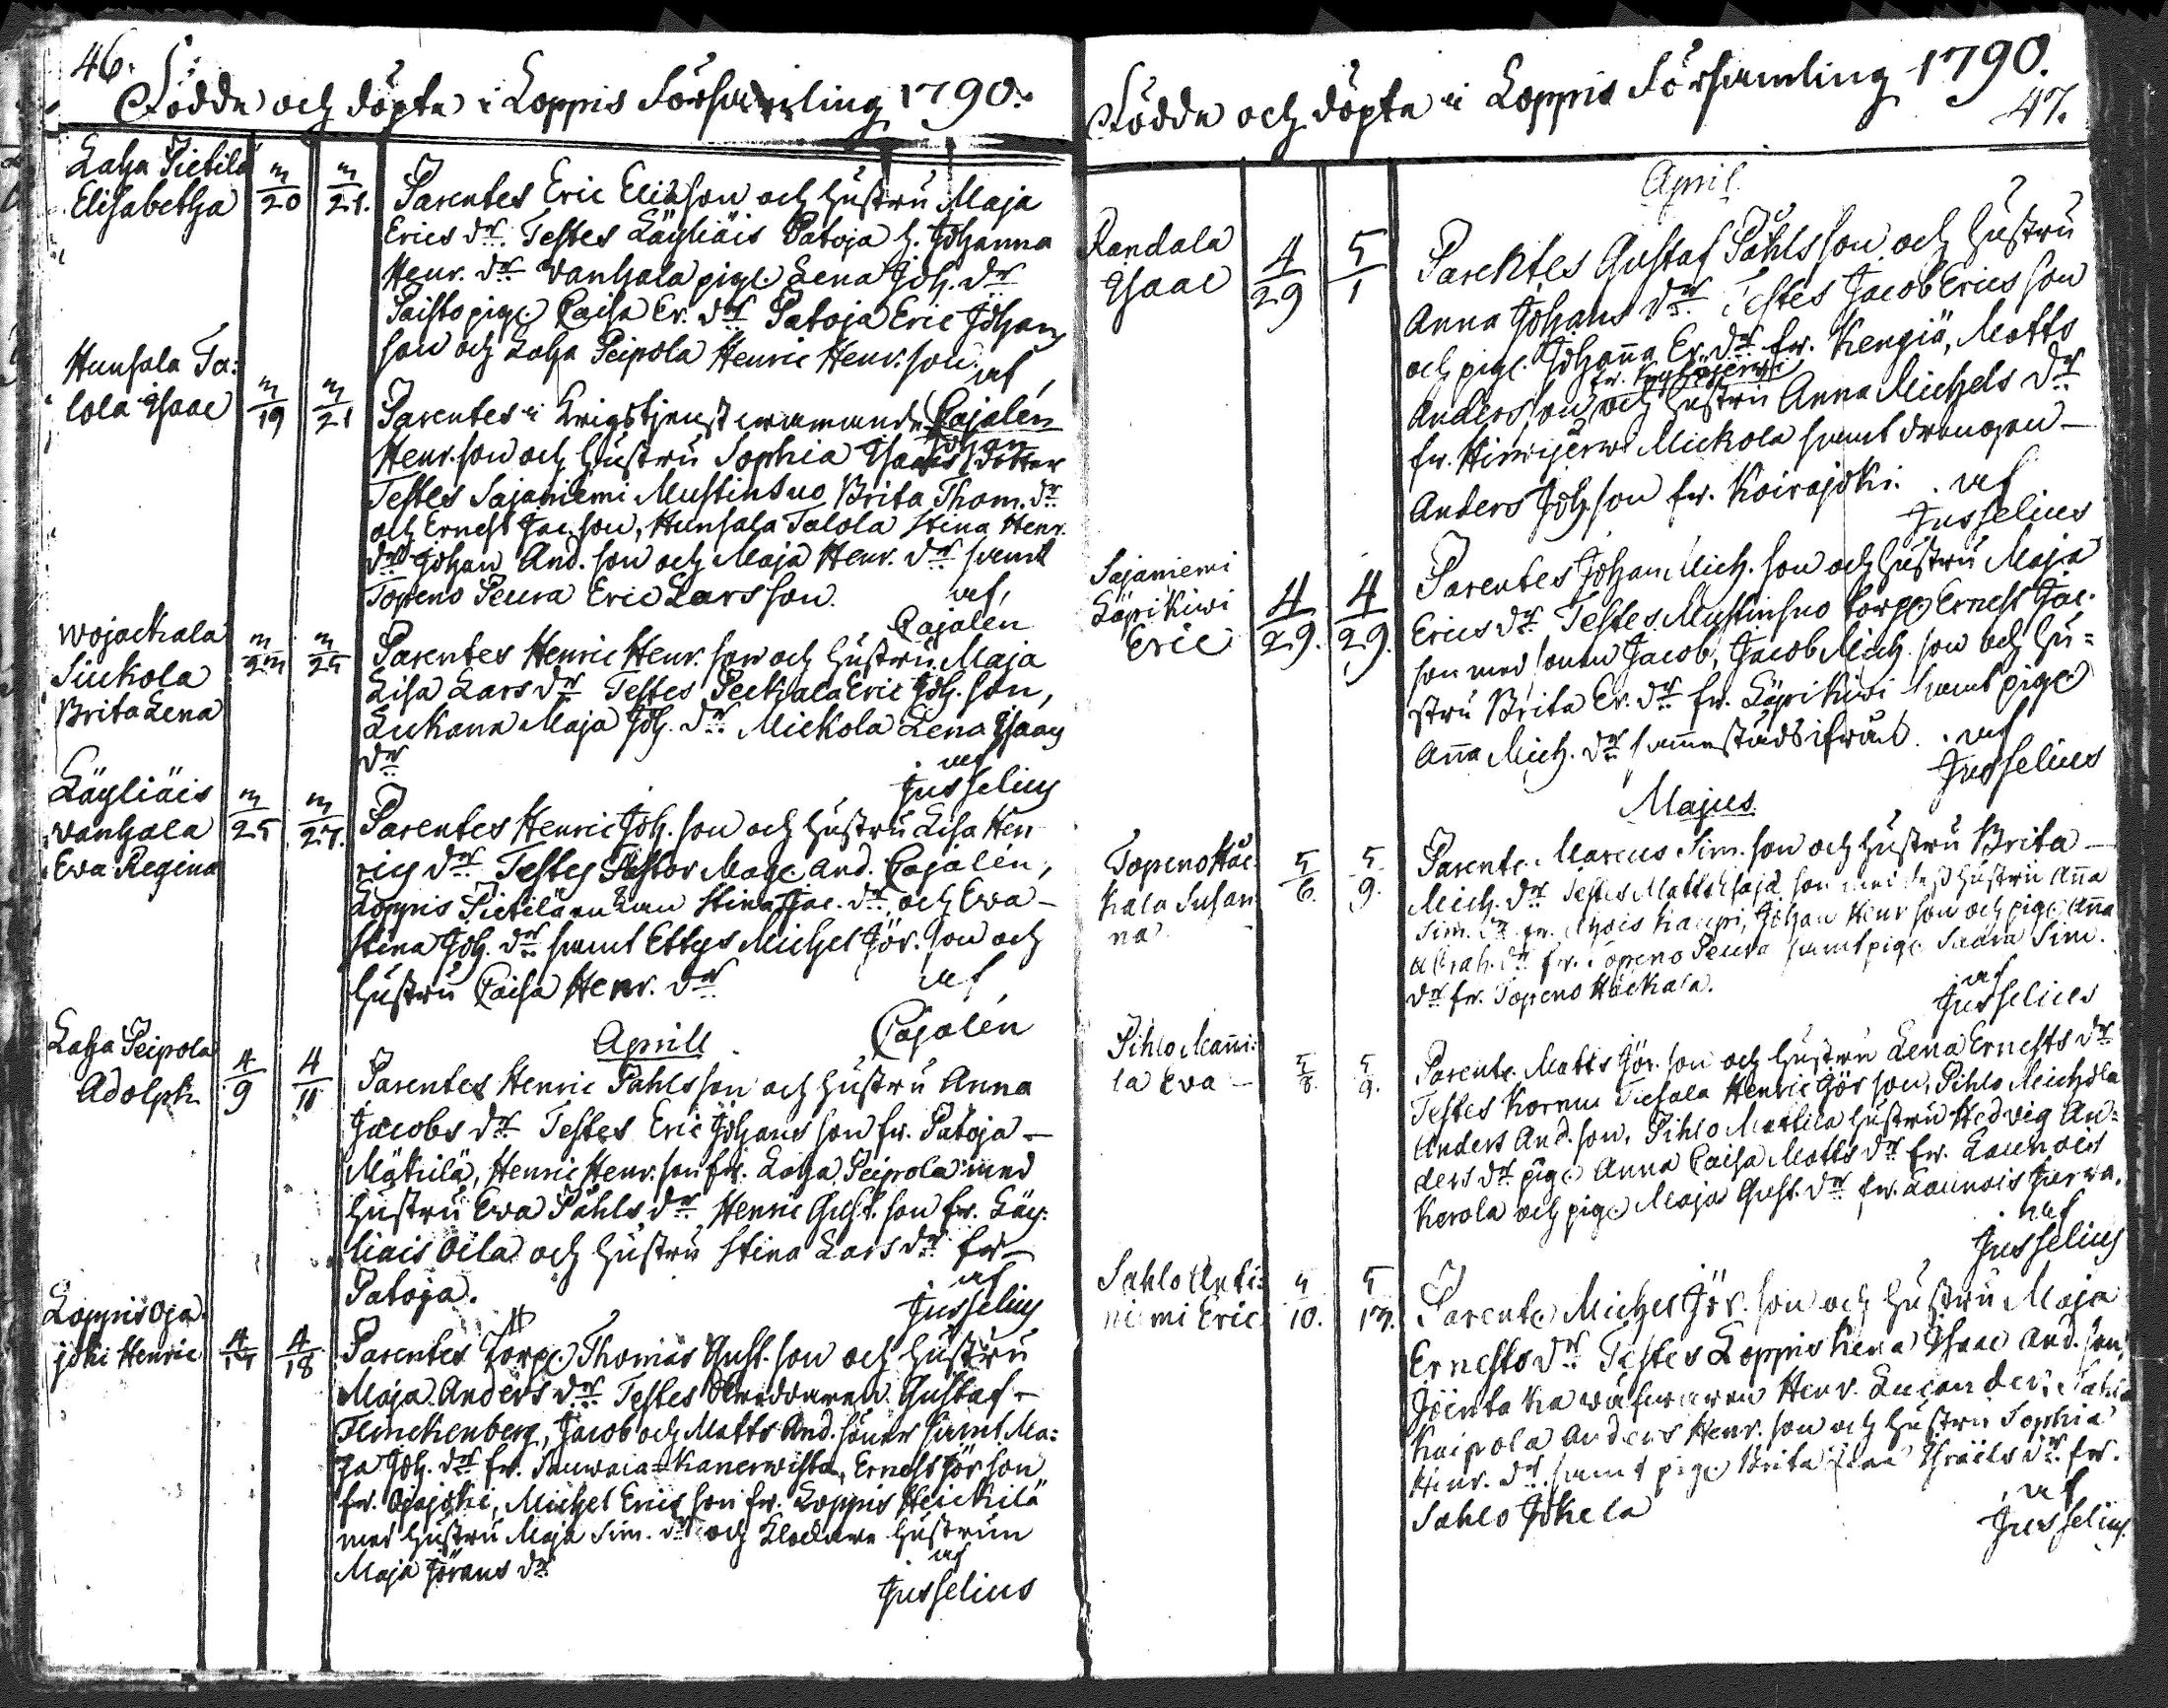 46.
Födde och döpte i Loppis Församling 1790.
Latja Pietilä
Elisabetha
3/20 3/21.
Parentes Eric Ericson och hustru Maja
Erics dr. Testes Läyliäis Patoja h. Johanna
Henr. dr Vanhala pig. Lena Joh. dr
Saisto pig. Caisa Er. dr Patoja Eric Johan
son och Latja Peipola Henric Henr. son. af
Hunsala Ta:
lola Isaac
3/19 3/21
Parentes i Krigstjenst warande Cajalén
Johan
Henr. son och hustru Sophia Isaacs dotter
Testes Sajaniemi Mustinsuo Brita Thom. dr
och Ernest Jac. son, Hunsala Talola Stina Henr.
dr Johan And. son och Maja Henr. dr samt
Topeno Peura Eric Larsson. af
Cajalén
Wojackala
Siukola
Brita Lena
Parentes Henric Henr. son och hustru Maja
Lisa Lars dr Testes Peckala Eric Joh. son,
Lukana Maja Joh. dr Mickola Lena Isaacs
dr af
Jusselius
Läyliäis
Vanhala
Ewa Regina
3/25 3/27.
Parentes Henric Joh. son och hustru Lisa Hen
rics dr Testes Pastor Mag. And. Cajalén,
Loppis Pietilä enkan Stina Jac. dr och Ewa
Stina Joh. dr samt Ettys Michel Jör. son och
hustru Caisa Henr. dr af
Cajalén
Aprill
Latja Peipola
Adolph
4/9 4/11
Parentes Henric Påhlsson och hustru Anna
Jacobs dr Testes Eric Johans son fr. Patoja
Mäkilä, Henric Henr. son fr. Latja Peipola med
hustru Ewa Påhls dr Henric Gust. son fr. Läy:
liäis Oila och hustru Stina Lars dr fr
Patoja. af
Jusselius
Loppis Oja
joki Henric
4/18
Parentes Torp. Thomas Gust. son och hustru
Maja Anders dr Testes Gustaf
Flinckenberg, Jacob och Matts And. söner samt Ma:
ja Joh. dr fr. Sauwala Kanerwisto, Ernest Jör son
fr. Ojajoki, Michel Erics son fr. Loppis Heickilä
med hustru Maja Sim. dr och Klockare hustrun
Maja Jörans dr af
Jusselius
Födde och döpte i Loppis Församling 1790.
47.
April.
Randala
Isaac
4/29 5/1
Parentes Gustaf Påhlsson och hustru
Anna Johans dr Testes Jacob Ericsson
och pig. Johanna Er. dr fr. Kengiä, Matts
Andersson och hustru Anna Michels dr
fr. Hirwijerwi Mickola samt drengen
Anders Joh. son fr. Koirajoki. af
Jusselius
Sajaniemi
Läpikiwi
Eric
4/29. 4/29.
Parentes Johan Mich. son och hustru Maja
Erics dr Testes Mustinsuo torp. Ernest Jac.
son med sonen Jacob, Jacob Mich. son och hu=
stru Brita Er. dr fr. Läpikiwi samt pig.
Anna Mich. dr sammastäds ifrån. af
Jusselius
Majus
Topeno Häc
kala Susan
na
5/6. 5/9.
Parente. Marcus Sim. son och hustru Brita
Mich. dr Testes Matts son med dess hustru Anna
Sim. dr fr. Kaupi, Johan Henr son och pig. Anna
Abrah. dr fr. Topeno Peura samt pig. Saara Sim.
dr fr. Topeno Häckala. af
Jusselius
Pihlo Manni:
la Ewa
5/8. 5/9.
Parente. Matts Jör. son och hustru Lena Ernests dr
Testes Kormu Henric Jör son, Pihlo Michola
Anders And. son, Pihlo Mattila hustru Hedvig An=
ders dr pig. Anna Caisa Matts dr fr. Launois
Kerola och pig. Maja Gust. dr fr. Launois Jurwa.
af
Jusselius
Sahlo Anti:
niemi Eric
5/10. 5/17.
Parente. Michel Jör. son och hustru Maja
Ernests dr Testes Loppis Kena Isaac And. son,
Henr. Lucander, Sahlo
Kaipola Anders Henr. son och hustru Sophia
Henr. dr samt pig. Brita Israels dr fr.
Sahlo Jokela af
Jusselius